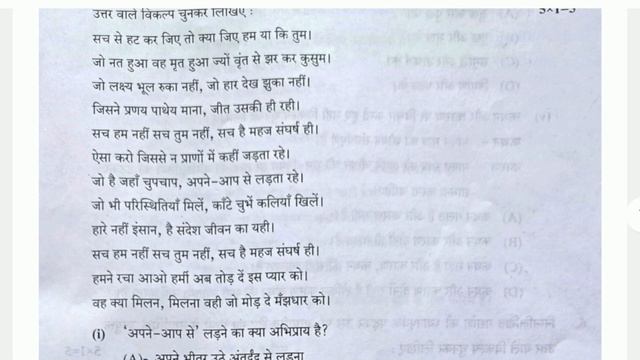 उत्तर वाले विकल्प चुनकर लिखिए : 5×1=5
सच से हट कर जिए तो क्या जिए हम या कि तुम।
जो नत हुआ वह मृत हुआ ज्यों वृंत से झर कर कुसुम।
जो लक्ष्य भूल रुका नहीं, जो हार देख झुका नहीं।
जिसने प्रणय पाथेय माना, जीत उसकी ही रही।
सच हम नहीं सच तुम नहीं, सच है महज संघर्ष ही।
ऐसा करो जिससे न प्राणों में कहीं जड़ता रहे।
जो है जहाँ चुपचाप, अपने-आप से लड़ता रहे।
जो भी परिस्थितियाँ मिलें, काँटे चुभें कलियाँ खिलें।
हारे नहीं इंसान, है संदेश जीवन का यही।
सच हम नहीं सच तुम नहीं, सच है महज संघर्ष ही।
हमने रचा आओ हमीं अब तोड़ दें इस प्यार को।
वह क्या मिलन, मिलना वही जो मोड़ दे मँझधार को।
(i) 'अपने-आप से' लड़ने का क्या अभिप्राय है?
(A) अपने भीतर उठे अंतर्द्वंद्व से लड़ना